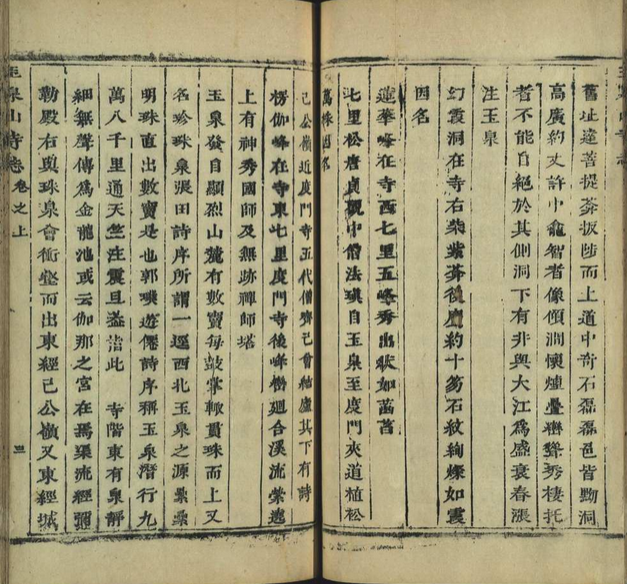 舊址達菩提菴坂陟而上道中奇石磊磊邑皆黝洞
高廣約丈許中龕智者像傾澗懷煙疊巘聳秀棲托
者不能自絕於其側洞下有井與大江爲盛衰春漲
注玉泉
幻霞洞在寺右紫紫菴後廣約十笏石紋絢爛如霞
因名
蓮華峰在寺西七里五峰秀出狀如菡萏
七里松唐貞觀中僧法瑱自玉泉至度門夾道植松
萬株因名
己公嶺近度門寺五代僧齊己曾結廬其下有詩
楞伽峰在寺東七里度門寺後峰巒廻合溪流縈遶
上有神秀國師及無跡禪師塔
玉泉發自顯烈山麓有數竇每鼓掌輒貫珠而上又
名珍珠泉張田詩序所謂一逕西北玉泉之源纍纍
明珠直出數竇是也郭璞遊僊詩序稱玉泉潛行九
萬八千里通天竺注震旦蓋諳此 寺階東有泉靜
細無聲傳爲金龍池或云伽那之宮在焉渠流經彌
勒殿右與珠泉會衝壑而出東經己公嶺又東經城
玉泉山寺志 卷之上 三